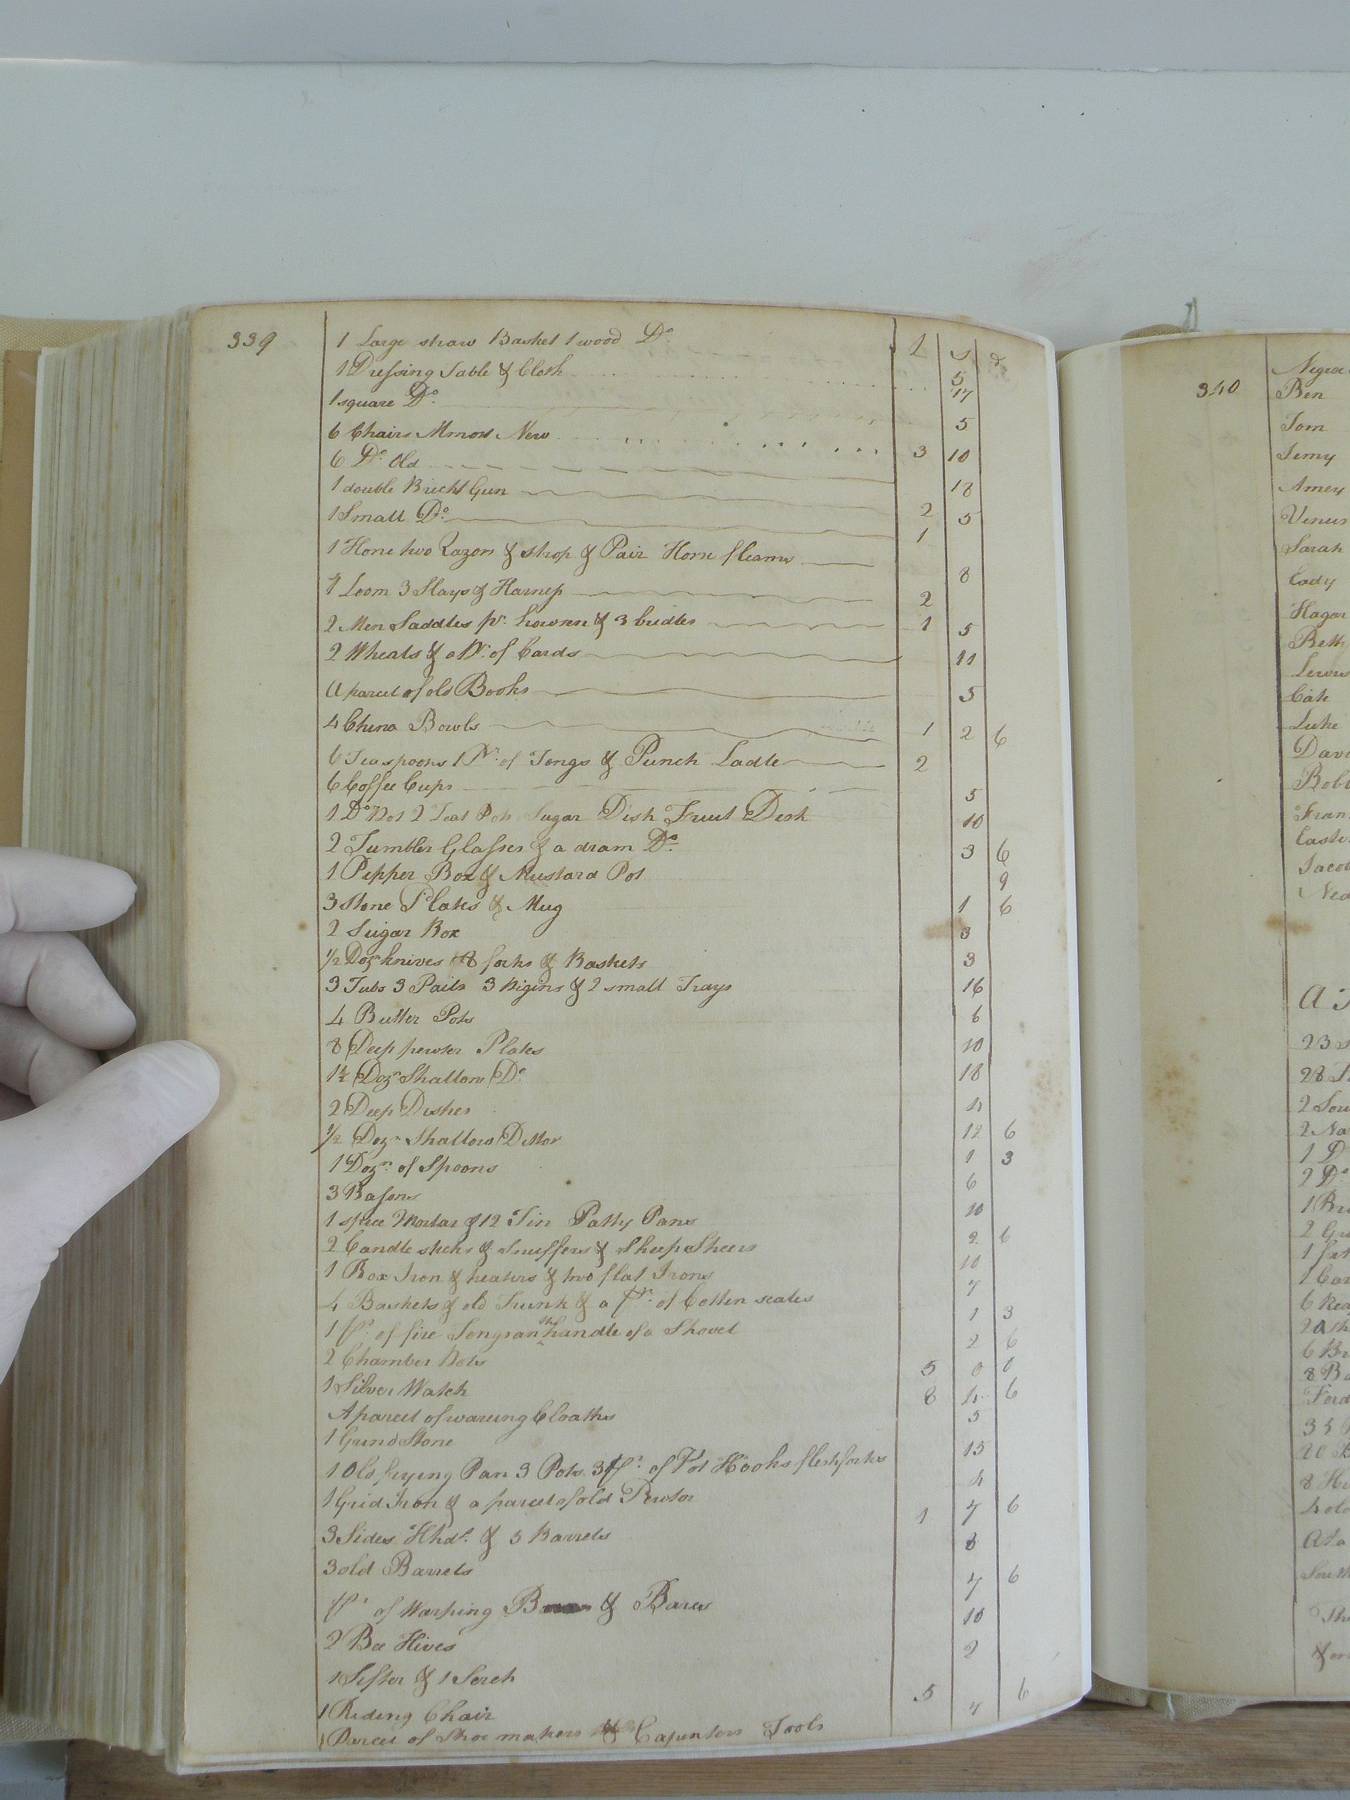 339
1 Large straw Basket 1 wood Do £ s d
1 Dressing Table & Cloth 5
1 square Do 17
6 Chairs Almost New 5
6 Do Old 3 10
1 double Bricht Gun 18
1 Small Do 2 5
1 Hone two Razors & strop & Pair Horn fleams 1
1 Loom 3 Slays & Harness 8
2 Men Saddles pr. housen & 3 bridles 2
2 Wheals & a Pr. of Cards 1 5
A parcel of old Books 11
4 China Bowls 5
6 Teaspoons 1 Pr. of Tongs & Punch Ladle 1 2 6
6 Coffee Cups 2
1 Do Pot 2 Teat Pots Sugar Dish Fruit Dish 5
2 Tumbler Glasses & a dram Do 10
1 Pepper Box & Mustard Pot 3 6
3 stone Plates & Mug 9
2 Sugar Box 1 6
1/2 Dozn knives 8 forks & Baskets 3
3 Tubs 3 Pails 3 Pigins & 2 small Trays 3
4 Butter Pots 16
8 Deep pewter Plates 6
1½ Dozn Shallow Do 10
2 Deep Dishes 18
1/2 Dozn Shallow Dittor 4
1 Dozn of Spoons 12 6
3 Basons 1 3
1 spice Mortar & 12 Tin Patty Pans 6
2 Candle sticks & Snuffers & Sheep Sheers 10
1 Box Iron & heaters & two flat Irons 2 6
4 Baskets & old Trunk & a pr. of Cotten scales 10
1 pr. of fire Tongs an the handle of a Shovel 7
2 Chamber Pots 1 3
1 Silver Watch 2 6
A parcel of waring Cloaths 5 0 0
1 Grind Stone 8 4 6
1 Old frying Pan 3 Pots 3 pr. of Pot Hooks fleshforks 5
1 Grid Iron & a parcel of old Pewter 15
3 Sides Hhds. & 5 Barrels 4
3 old Barrels 1 7 6
pr. of Warping & Bares 8
2 Bee Hives 7 6
1 Sifter & 1 Serch 10
1 Riding Chair 2
1 Parcel of Shoe makers & Capenters Tools 5 7 6
340
Negroe
Ben
Tom
Jemy
Amey
Venus
Sarah
Cady
Hagar
Bett
Lewis
Cate
Luke
Davi
Bob
Fran
Easte
Jacob
Ned
A
23
28
2 Sow
2
1 D
2 Do
1
2
1
1
6
2
6
8
Ford
35
20
8
4 old